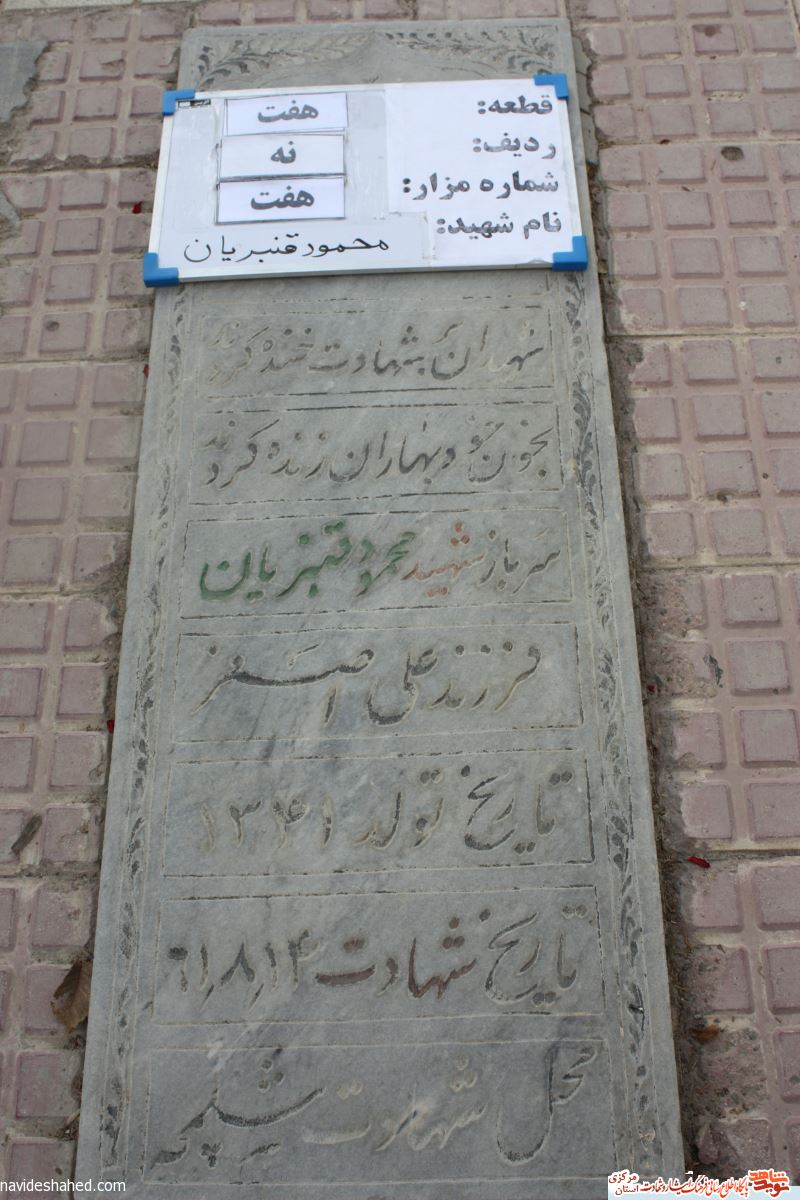 قطعه: هفت
ردیف: نه
شماره مزار: هفت
نام شهید: محمود قنبریان
شهیدان بشهادت خنده کردند
بخون خود بهاران زنده کردند
سرباز شهید محمود قنبریان
فرزند علی اصغر
تاریخ تولد ۱۳۴۱
تاریخ شهادت ۶۱٫۸٫۱۴
محل شهادت شلمچه
navideshahed.com
نوید شاهد
استان مرکزی